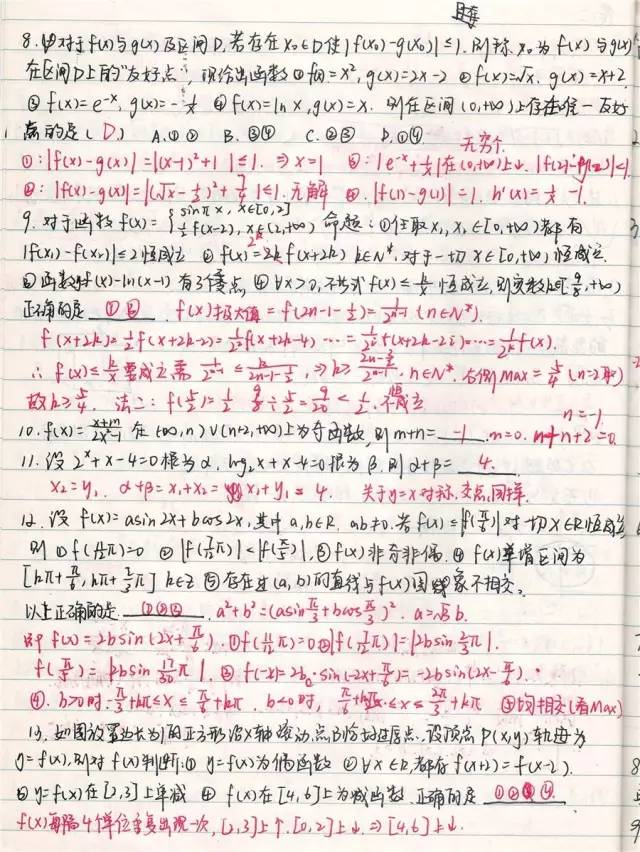 8. 对于f(x)与g(x)及区间D,若存在x₀∈D使|f(x₀)-g(x₀)|≤1.则称x₀为f(x)与g(x)
在区间D上的"友好点".现给出函数①f(x)=x²,g(x)=2x-2 ②f(x)=√x.g(x)=x+2
③f(x)=e^-x,g(x)=-1/x ④f(x)=ln x,g(x)=x.则在区间(0,+∞)上存在唯一友好
点的是(D) A.①② B.③④ C.②③ D.①④
无穷个
①:|f(x)-g(x)|=|(x-1)²+1|≤1.⇒x=1 ③:|e^-x+1/x|在(0,+∞)上↓.
②:|f(x)-g(x)|=|(√x-1/2)²+7/4|≤1.无解 ④.|f(1)-g(1)|=1.h'(x)=1/x-1.
9. 对于函数f(x)={sinπx,x∈[0,2] 1/2f(x-2),x∈(2,+∞) 命题:①任取x₁,x₂∈[0,+∞)都有
|f(x₁)-f(x₂)|≤2恒成立 ②f(x)=2kf(x+2k) k∈N*,对于一切x∈[0,+∞)恒成立.
③函数f(x)-ln(x-1)有3个零点 ④∀x>0,不等式f(x)≤k/x恒成立,则实数k∈[9/8,+∞)
正确的是 ①③ f(x)极大值=f(2n-1-1/2)=1/2^n-1(n∈N*).
f(x+2k)=1/2f(x+2k-2)=1/2²f(x+2k-4)…=1/2^i f(x+2k-2i)=…=1/2^k f(x).
∴f(x)≤k/x要成立需1/2^n-1≤k/(2n-1-1/2),⇒k≥(2n-3/2)/2^n-1.n∈N*.右侧max=5/4(n=2取)
故k≥5/4. 法二:f(5/2)=1/2 9/8÷5/2=9/20<1/2.不成立
n=-1.
10. f(x)=(x+m)/(2x²-1)在(-∞,n)∪(n+2,+∞)上为奇函数,则m+n=-1.m=0.n+n+2=0
11. 设2^x+x-4=0根为α,log₂x+x-4=0根为β.则α+β=4.
x₂=y₁.α+β=x₁+x₂=x₁+y₁=4. 关于y=x对称.交点同样.
12. 设f(x)=asin2x+bcos2x,其中a,b∈R,ab≠0.若f(x)≤|f(π/6)|对一切x∈R恒成立
则①f(11/12π)=0 ②|f(7/12π)|<|f(π/5)|,③f(x)非奇非偶.④f(x)单增区间为
[kπ+π/6,kπ+2/3π] k∈Z ⑤存在过(a,b)的直线与f(x)图象不相交.
以上正确的是 ①②③ a²+b²=(asinπ/3+bcosπ/3)².a=√3b.
即f(x)=2bsin(2x+π/6).①f(11/12π)=0②|f(7/12π)|=|2bsin4/3π|.
f(π/5)=|2bsin17/30π|.③f(-x)=2bsin(-2x+π/6)=-2bsin(2x-π/6).
④.b>0时.-π/3+kπ≤x≤π/6+kπ.b<0时,π/6+kπ≤x≤2π/3+kπ ⑤均相交(看Max)
13. 如图放置边长为1的正方形沿x轴滚动,点B恰好过原点.设顶点P(x,y)轨迹为
y=f(x),则对f(x)判断:①y=f(x)为偶函数 ②∀x∈R,都有f(x+2)=f(x-2).
③y=f(x)在[2,3]上单减 ④f(x)在[4,6]上为减函数.正确的是 ①②④
f(x)每隔4个单位重复出现一次,[2,3]上↑.[0,2]上↓.⇒[4,6]上↓.